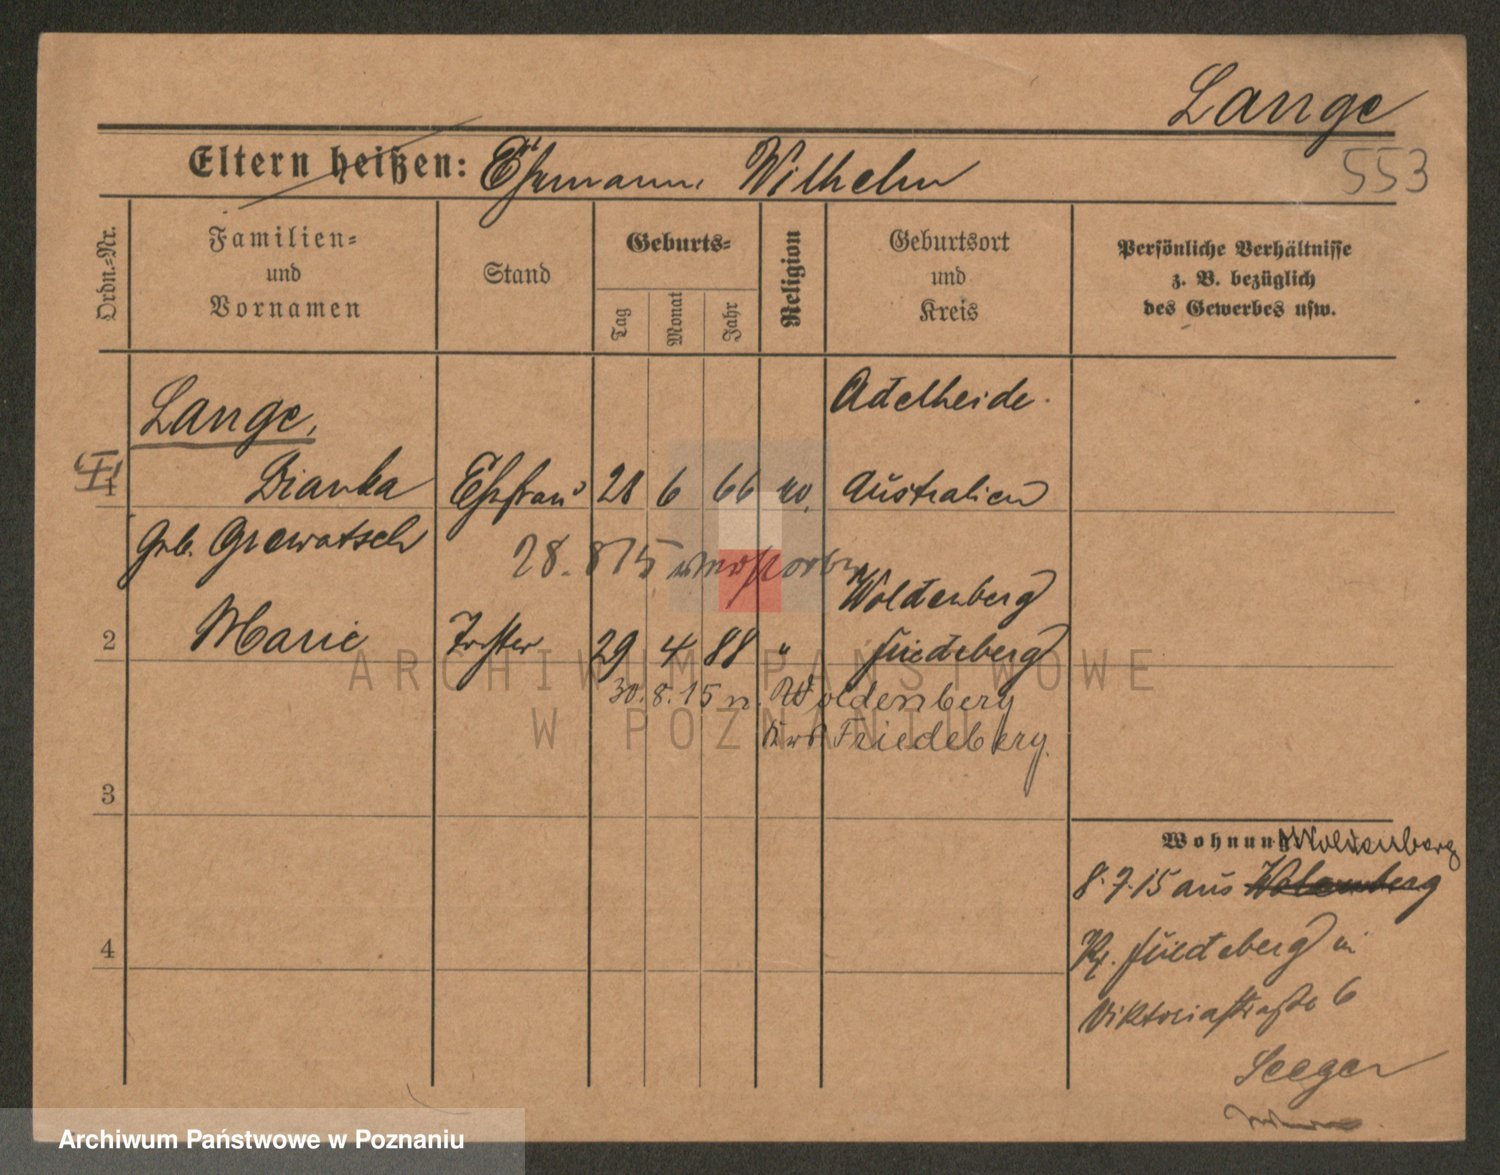 Lange
Eltern heißen: Ehemann, Wilhelm
553
Ordn.-Nr.
Familien-
und
Vornamen
Stand
Geburts-
Tag
Monat
Jahr
Religion
Geburtsort
und
Kreis
Persönliche Verhältnisse
z. B. bezüglich
des Gewerbes usw.
Lange,
Adelheide
1
Bianka Ehefrau 28 6 66 Australien
Geb. Grewatsch
28.8 15 verstorben
Woldenberg
2 Marie Tochter 29 4 88 " Friedeberg
30.8.15 n. Woldenberg
Friedeberg.
3
Wohnung Woldenberg
8.7.15 aus
Kr. Friedeberg in
4
Viktoriastraße 6
Seeger
ARCHIWUM PAŃSTWOWE
W POZNANIU
Archiwum Państwowe w Poznaniu